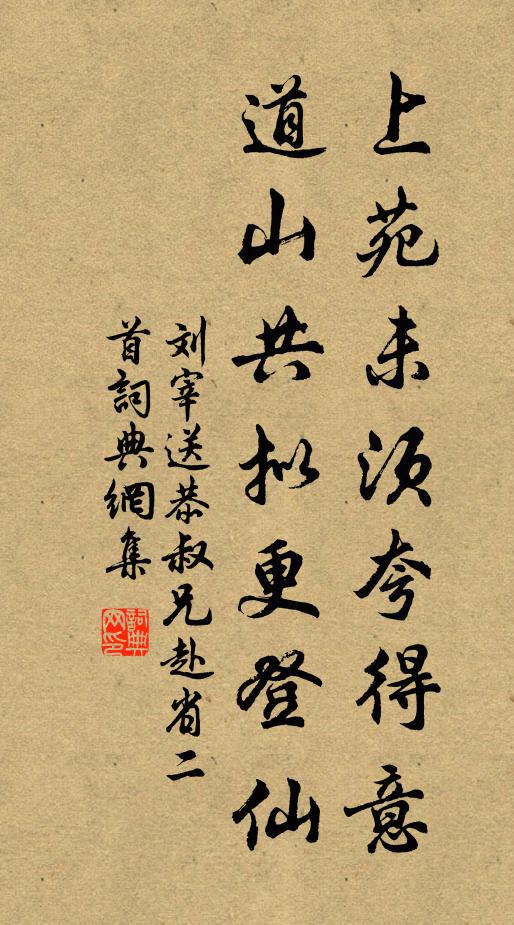 上苑未须夸得意
道山共拟更登仙
刘宰送恭叔兄赴省二
首詞典網集
詞典网印